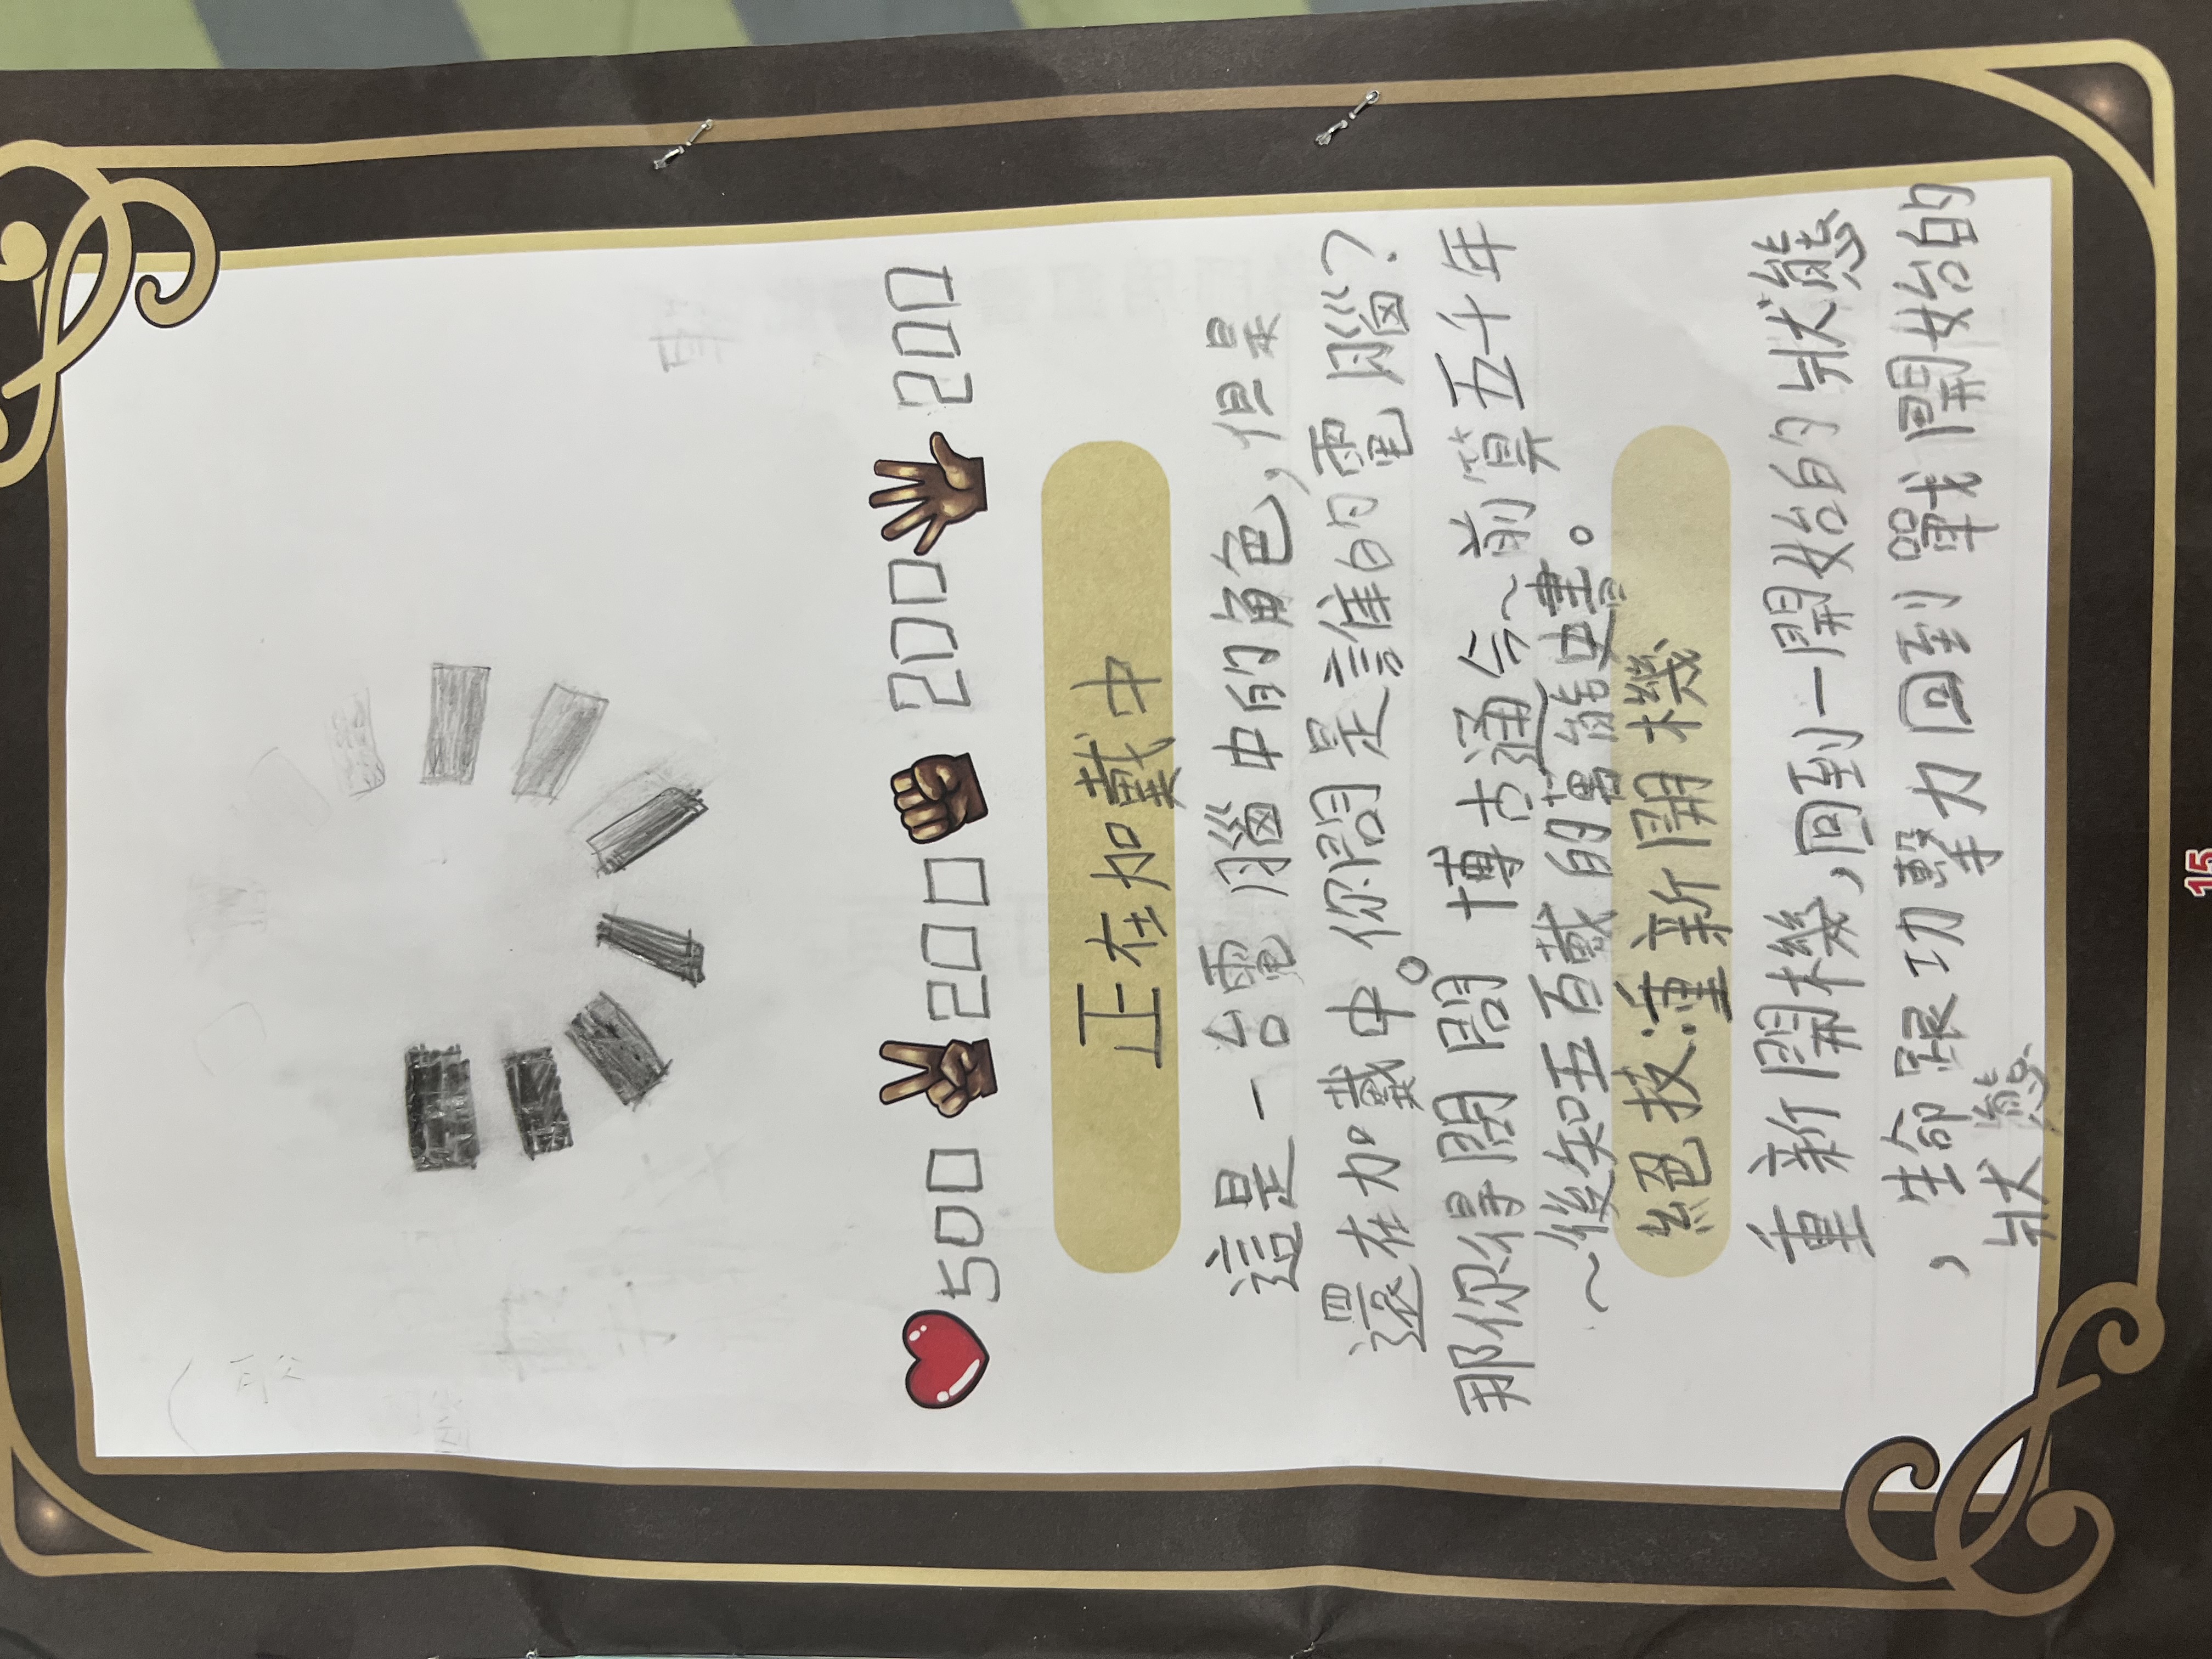 500 200 200 200
正在加載中
這是一台電腦中的角色,但是
還在加載中。你問是誰的電腦?
那你得問問 博古通今~前算五千年
~後知五百載的萬能史書。
絕技:重新開機
重新開機,回到一開始的狀態
,生命跟功擊力回到戰開始的
狀態
15